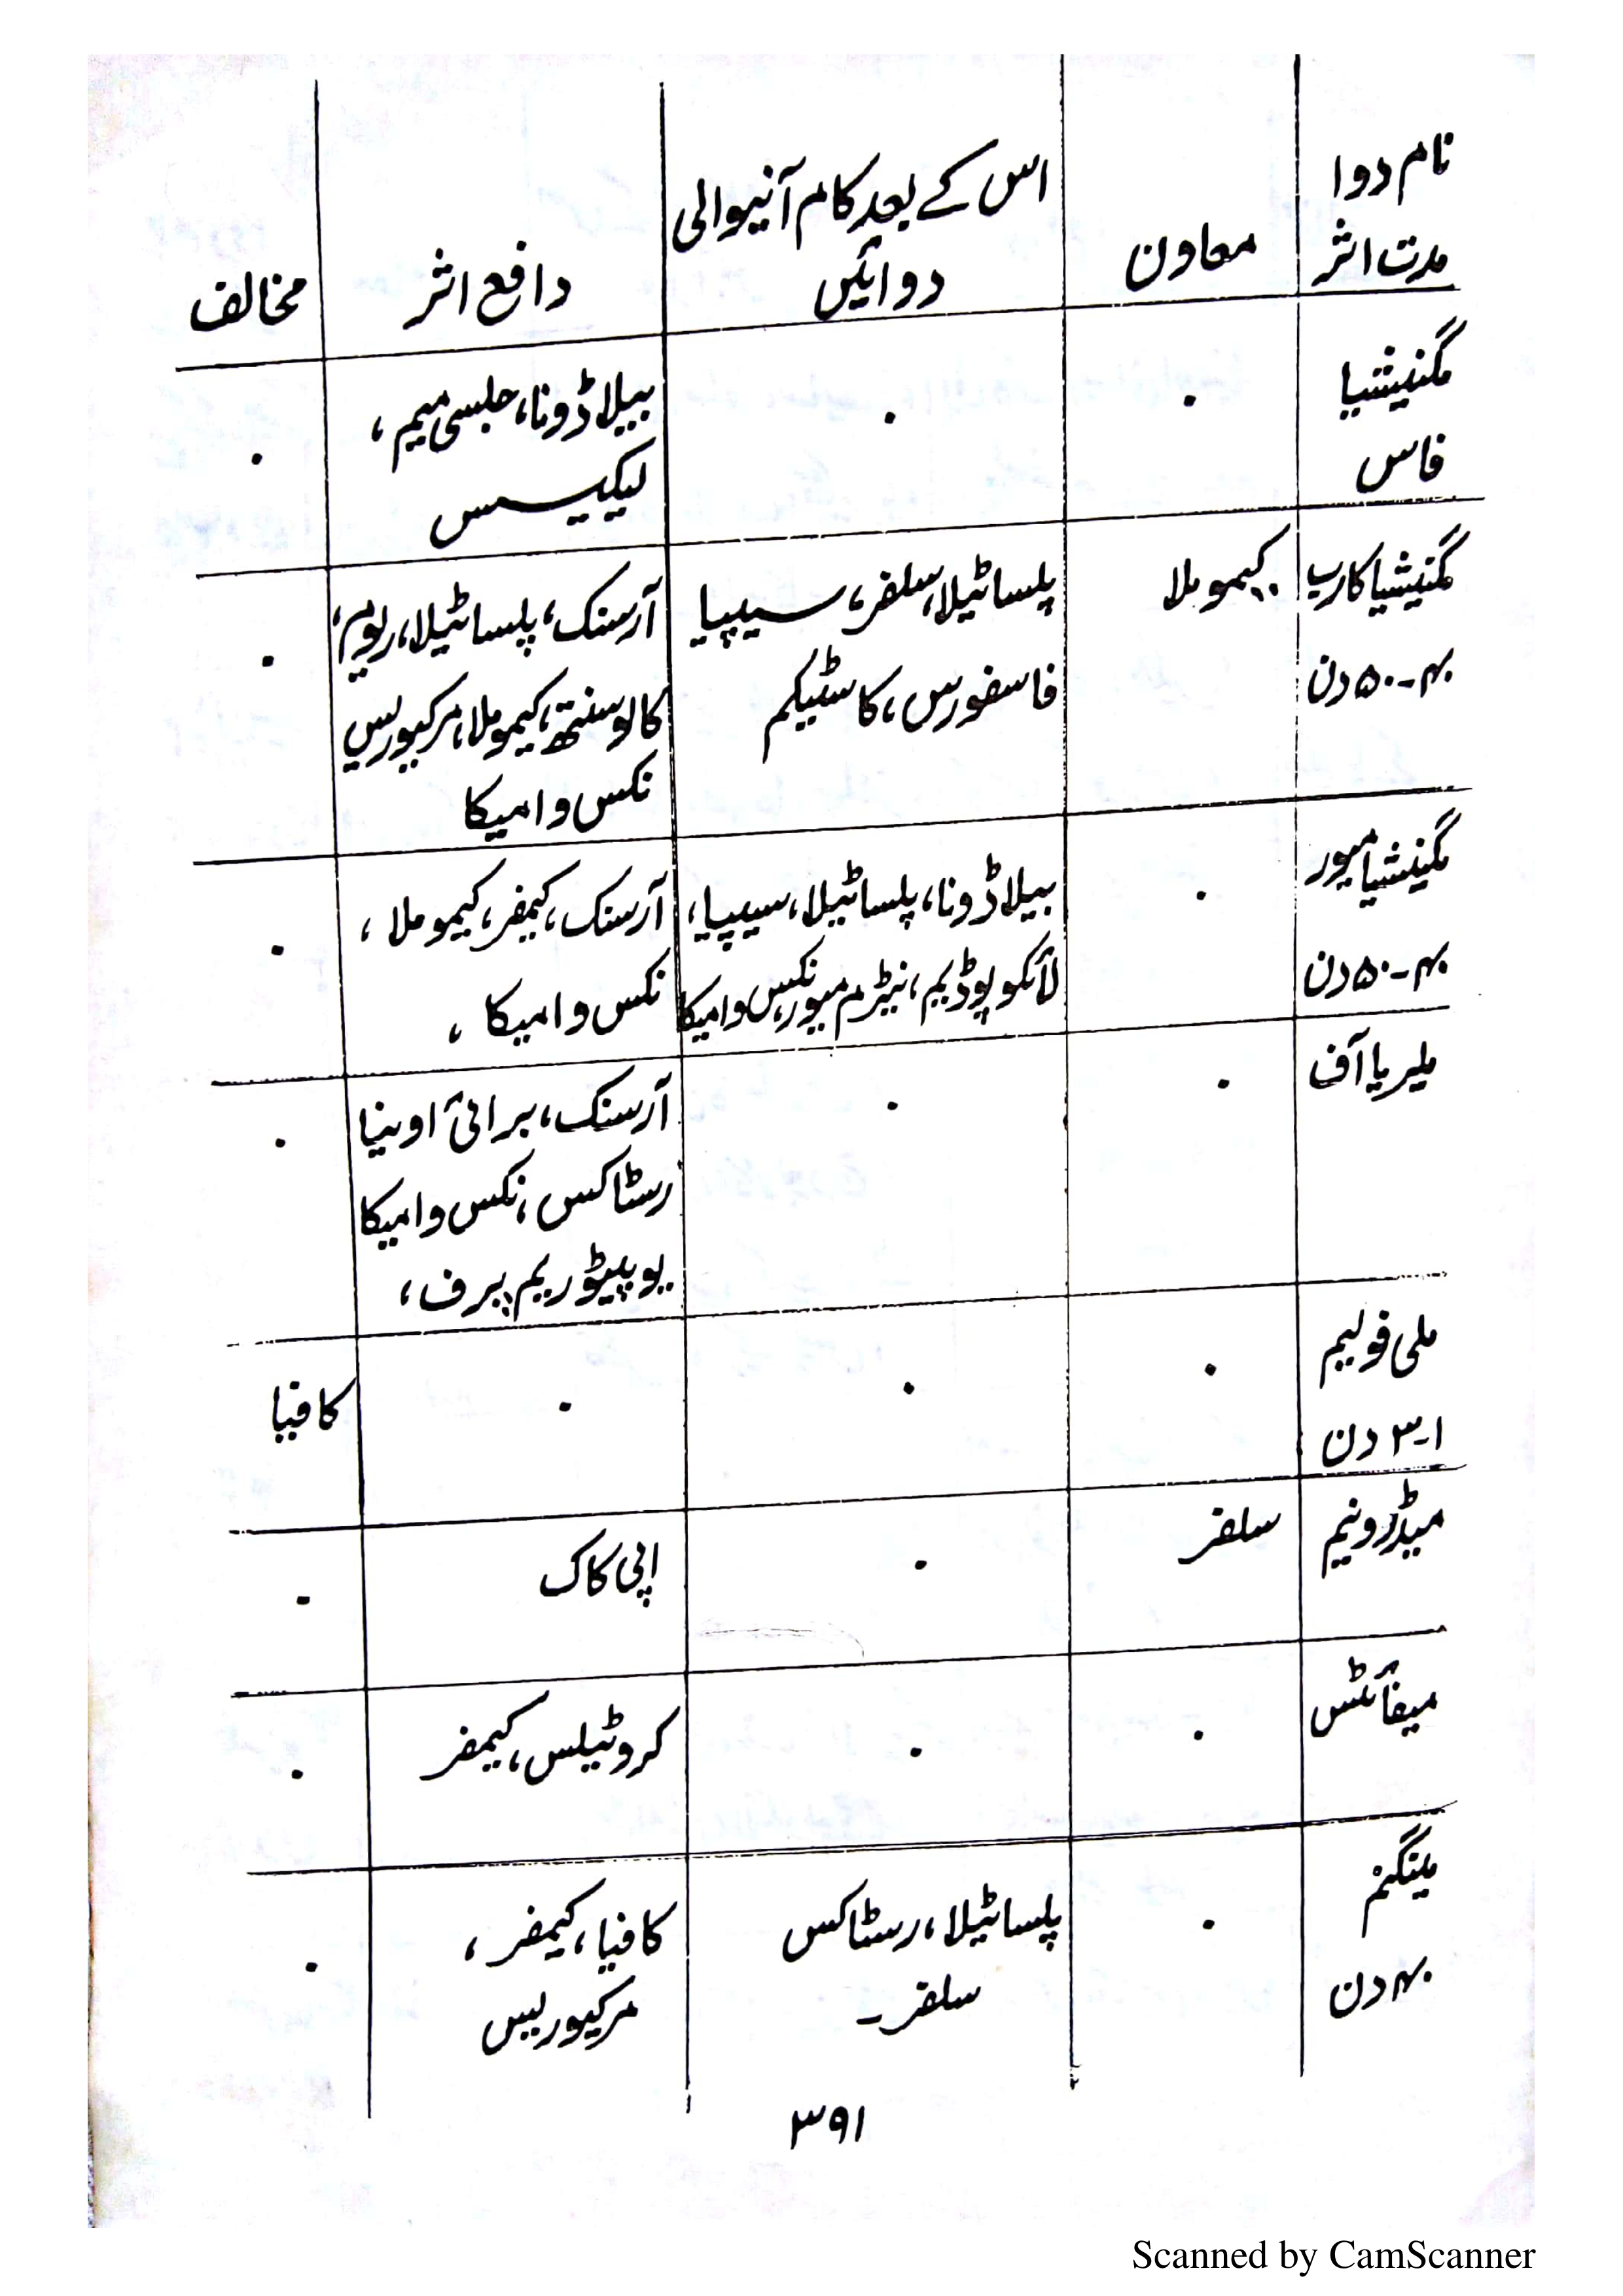 نام دوا
مدت اثر
معاون
اس کے بعد کام آنیوالی
دوائیں
دافع اثر
مخالف
مگنیشیا
فاس
۰
۰
بیلاڈونا، جلسی میم،
لیکیسس
۰
مگنیشیا کارب
۴۰-۵۰ دن
کیموملا
پلساٹیلا، سلفر، سیپیا
فاسفورس، کاسٹیکم
آرسنک، پلساٹیلا، ریوم،
کالوسنتھ، کیموملا، مرکیورس
نکس وامیکا
۰
مگنیشیا میور
۴۰-۵۰ دن
۰
بیلاڈونا، پلساٹیلا، سیپیا،
لائکوپوڈیم، نیٹرم میور، نکس وامیکا
آرسنک، کیمفر، کیموملا،
نکس وامیکا،
۰
ملیریا آف
۰
۰
آرسنک، برائی اونیا
رسٹاکس، نکس وامیکا
یوپیٹوریم پرف،
۰
ملی فولیم
۱-۳ دن
۰
۰
۰
کافیا
میڈورونیم
سلفر
۰
اپی کاک
۰
میفائٹس
۰
۰
کروٹیلس، کیمفر
۰
مینگنم
۴۰ دن
۰
پلساٹیلا، رسٹاکس
سلفر۔
کافیا، کیمفر،
مرکیوریس
۰
۳۹۱
Scanned by CamScanner